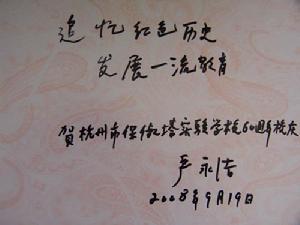 追忆红色历史
发展一流教育
贺杭州市保俶塔实验学校60周年校庆
严永洁
2008年9月19日